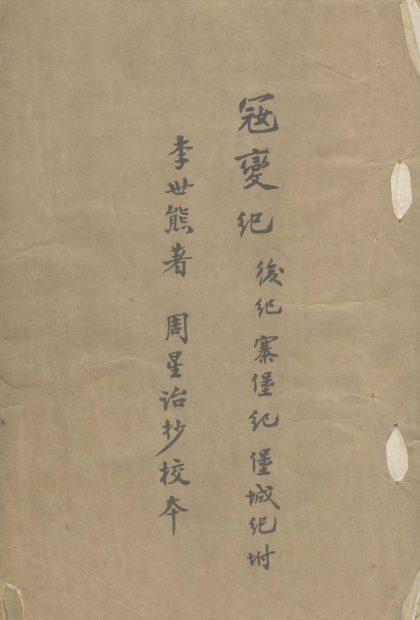 寇變紀 後紀 寨堡紀 堡城紀坿
李世熊著 周星詒抄校本